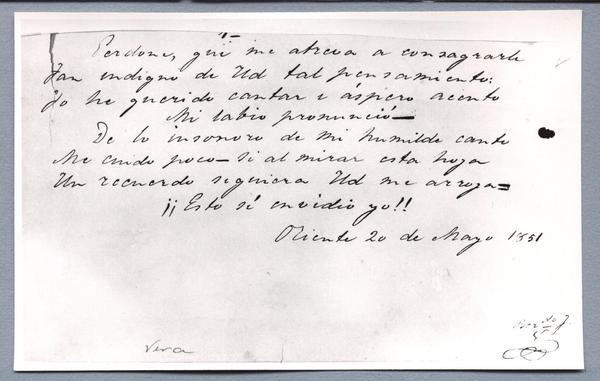 Perdone, que me atreva a consagrarle
Tan indigno de Ud tal pensamiento:
Yo he querido cantar i áspero acento
Mi labio pronunció—
De lo insonoro de mi humilde canto
Me cuido poco— si al mirar esta hoja
Un recuerdo siquiera Ud me arroja=
¡¡Esto sí envidio yo!!
Oriente 20 de Mayo 1851
Vera